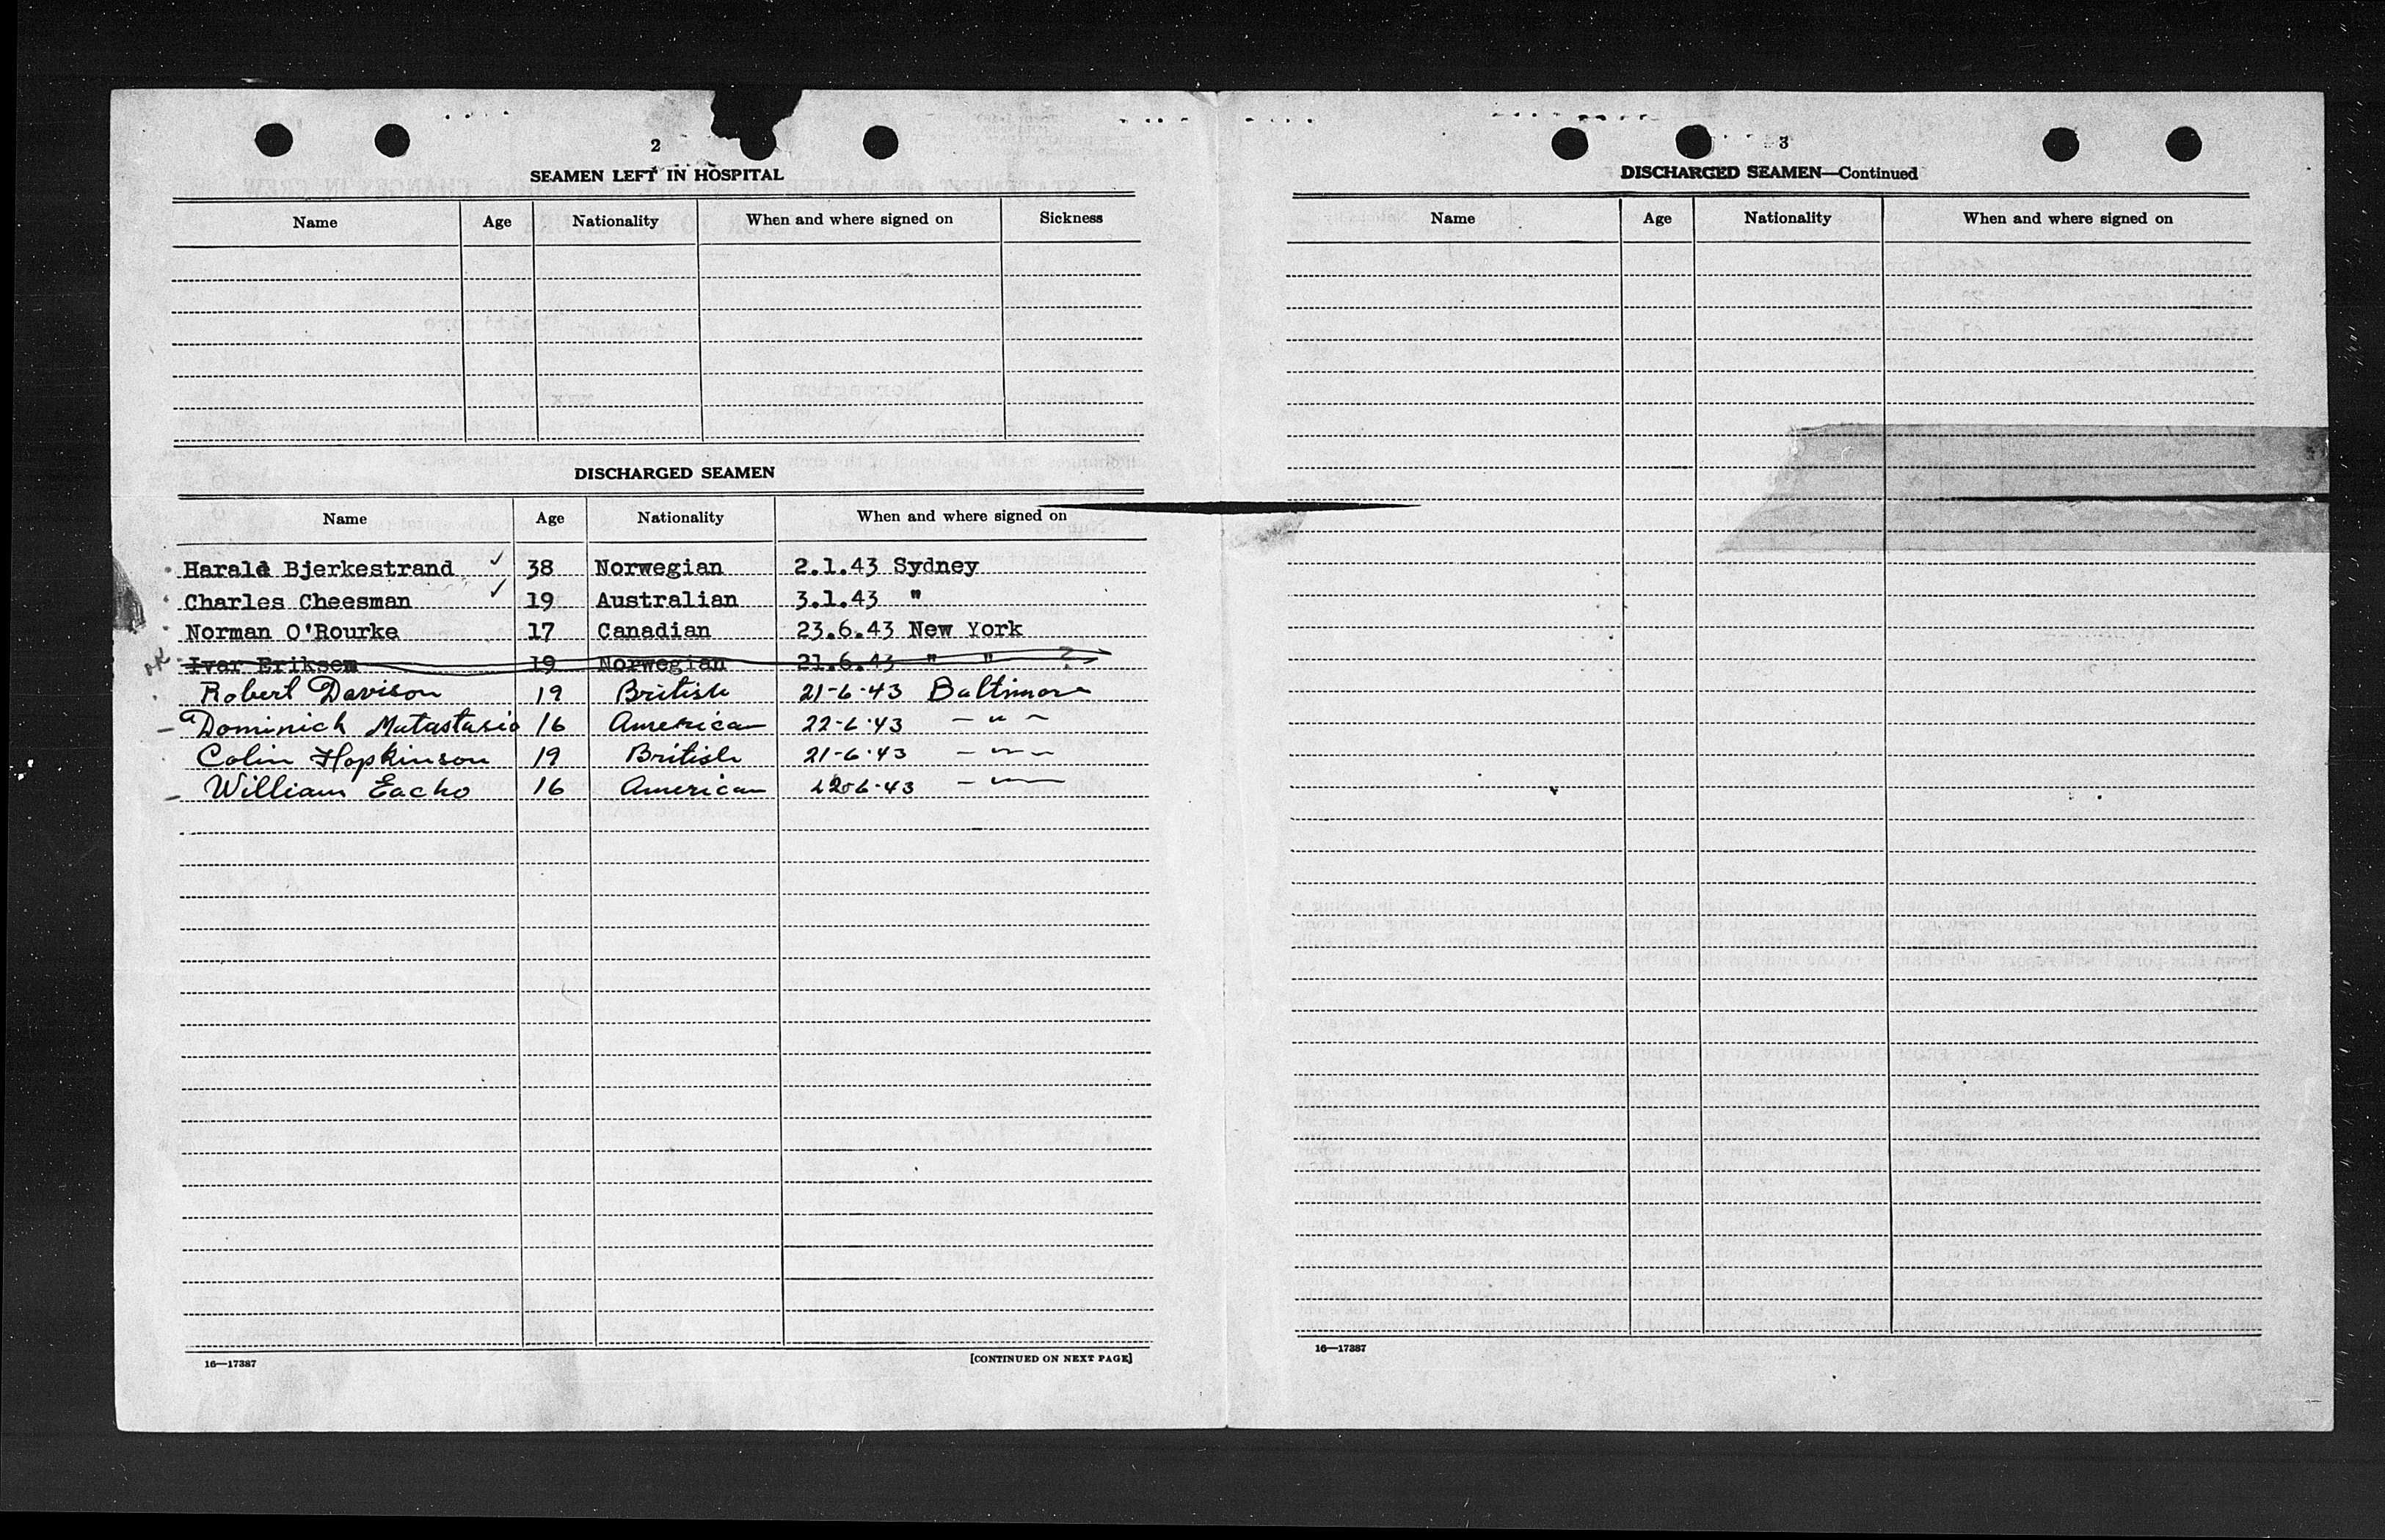 2
SEAMEN LEFT IN HOSPITAL
Name Age Nationality When and where signed on Sickness
DISCHARGED SEAMEN
Name Age Nationality When and where signed on
Harald Bjerkestrand ✓ 38 Norwegian 2.1.43 Sydney
Charles Cheesman ✓ 19 Australian 3.1.43 "
Norman O'Rourke 17 Canadian 23.6.43 New York
OK Ivar Eriksen 19 Norwegian 21.6.43 " " ?
Robert Davison 19 British 21-6-43 Baltimore
Dominick Matastasio 16 American 22-6-43 - " -
Colin Hopkinson 19 British 21-6-43 - " -
William Eacho 16 American - " -
16—17387 [CONTINUED ON NEXT PAGE]
3
DISCHARGED SEAMEN—Continued
Name Age Nationality When and where signed on
16—17387